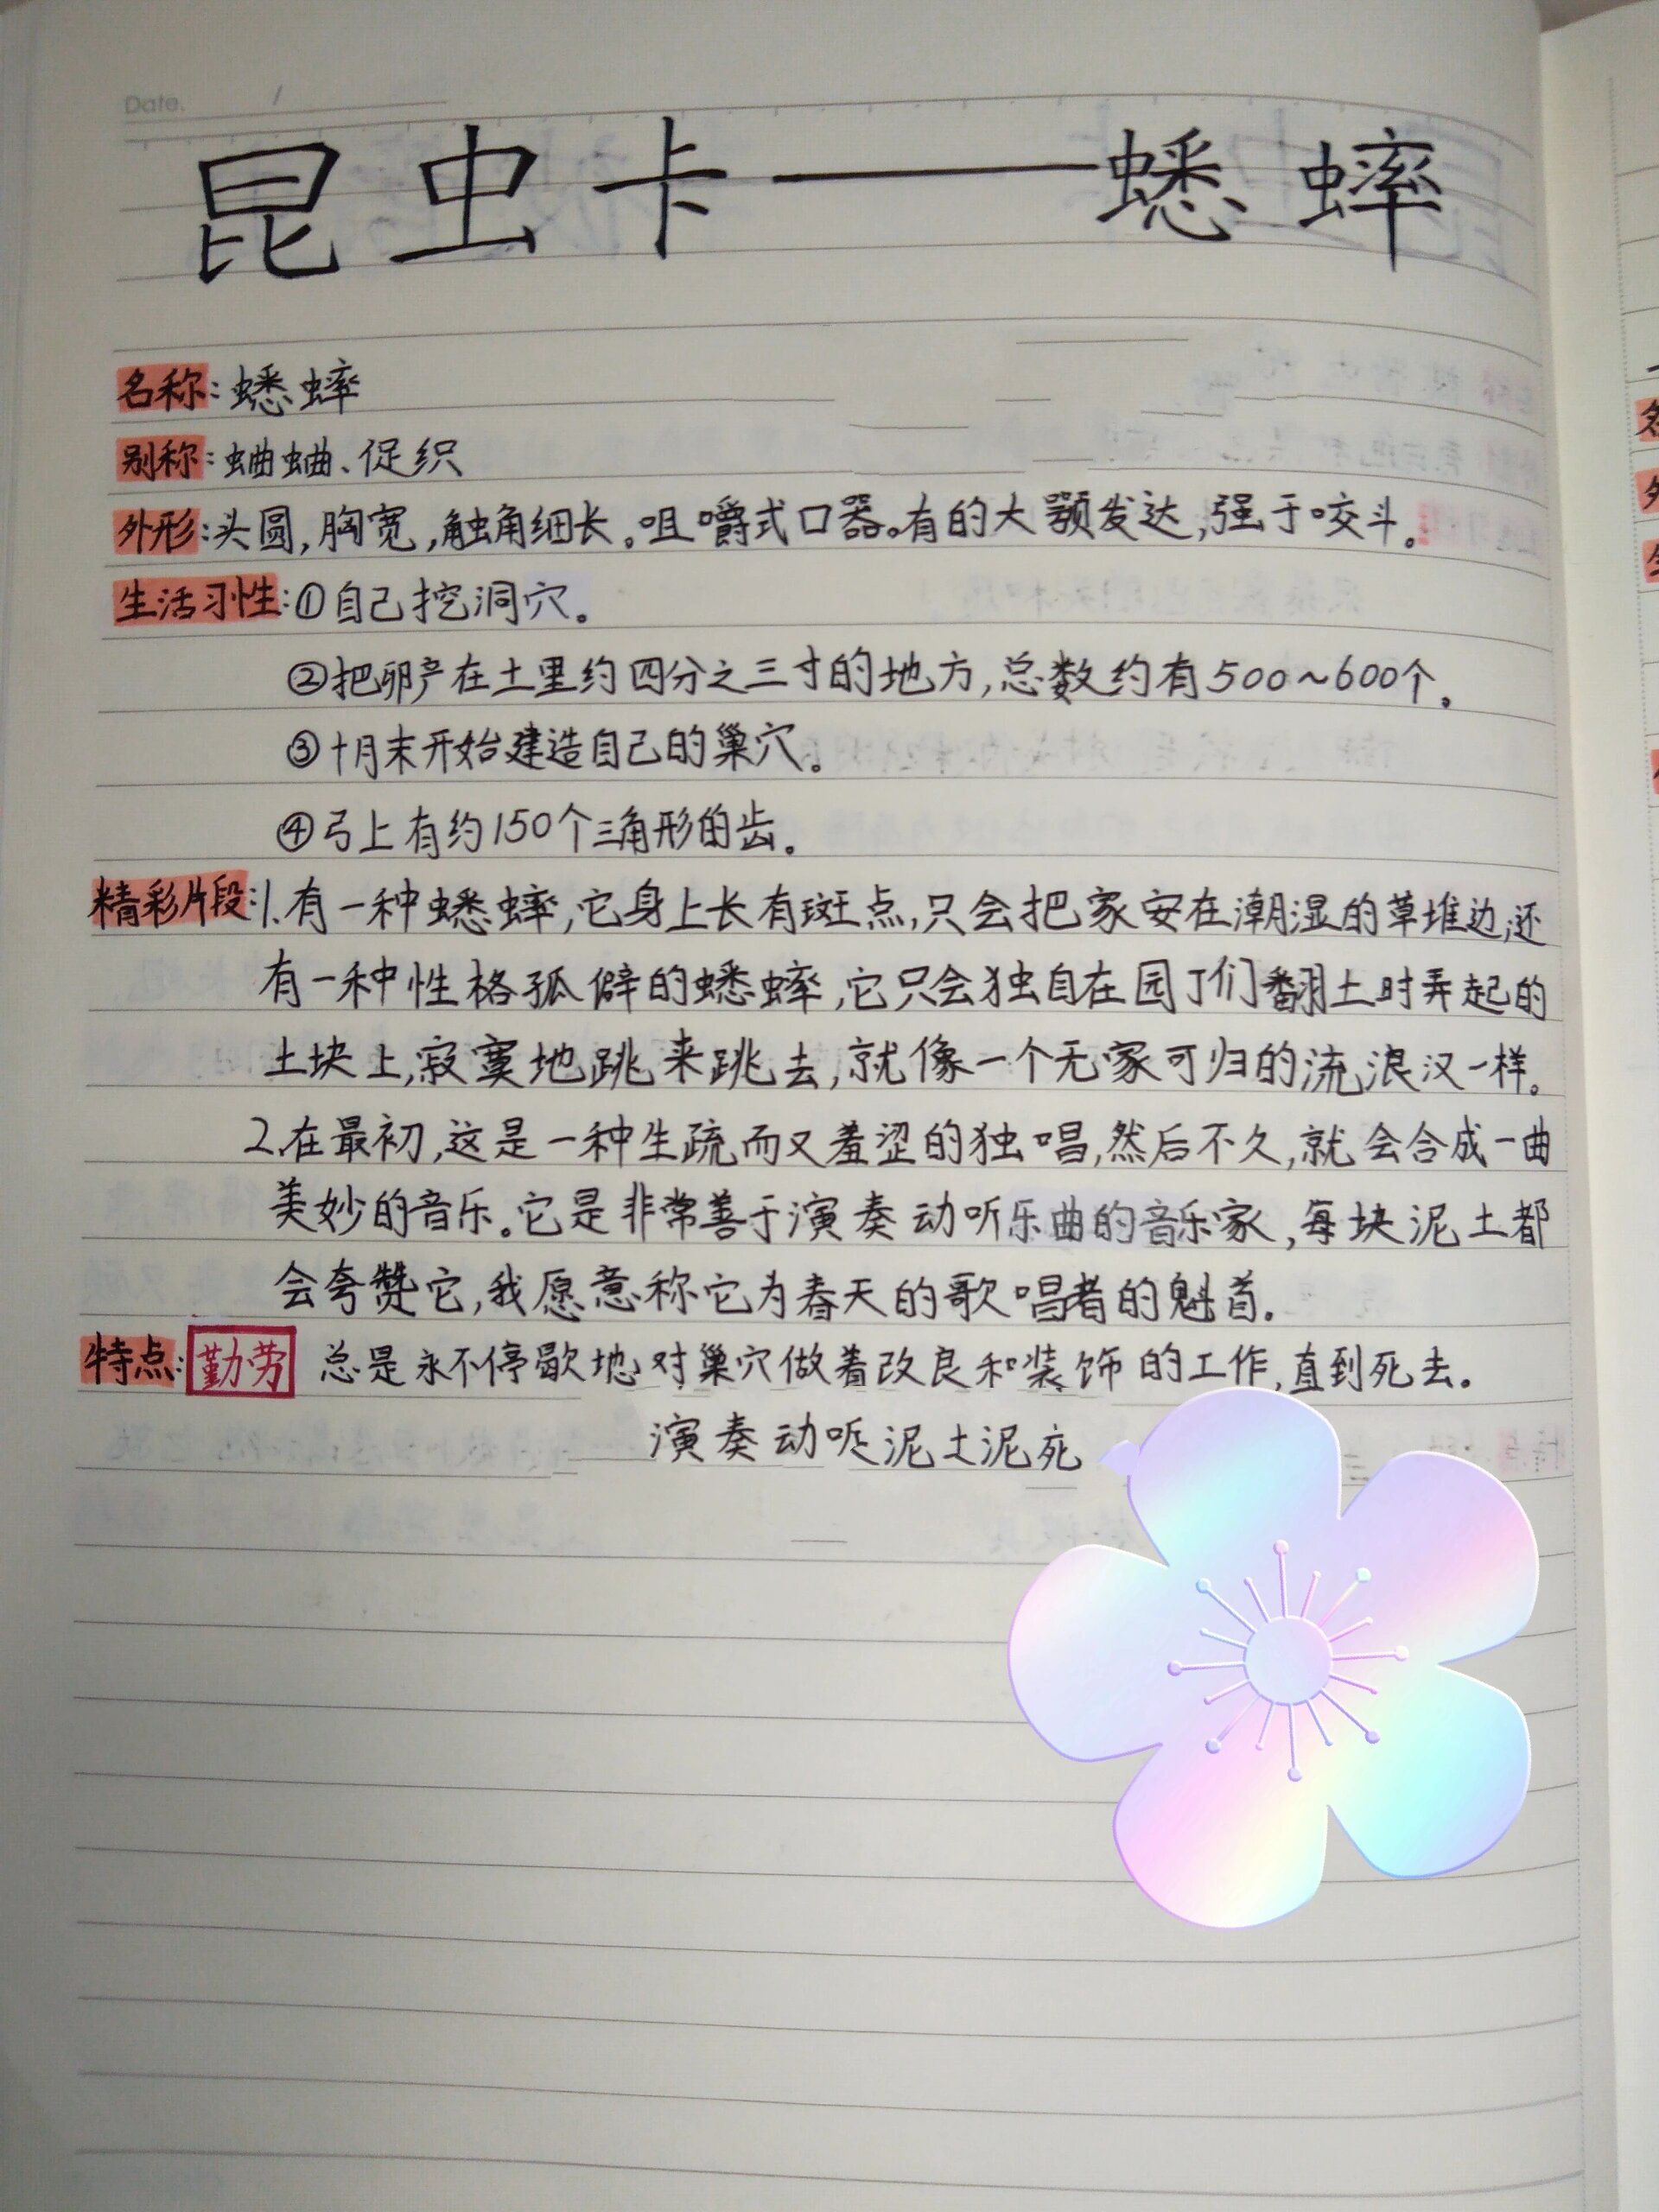 Date.
昆虫卡——蟋蟀
名称:蟋蟀
别称:蛐蛐、促织
外形:头圆,胸宽,触角细长。咀嚼式口器。有的大颚发达,强于咬斗。
生活习性:①自己挖洞穴。
②把卵产在土里约四分之三寸的地方,总数约有500~600个。
③十月末开始建造自己的巢穴。
④弓上有约150个三角形的齿。
精彩片段:1.有一种蟋蟀,它身上长有斑点,只会把家安在潮湿的草堆边,还
有一种性格孤僻的蟋蟀,它只会独自在园丁们翻土时弄起的
土块上,寂寞地跳来跳去,就像一个无家可归的流浪汉一样。
2.在最初,这是一种生疏而又羞涩的独唱,然后不久,就会合成一曲
美妙的音乐。它是非常善于演奏动听乐曲的音乐家,每块泥土都
会夸赞它,我愿意称它为春天的歌唱者的魁首.
特点:勤劳 总是永不停歇地对巢穴做着改良和装饰的工作,直到死去.
演奏动 泥土泥死